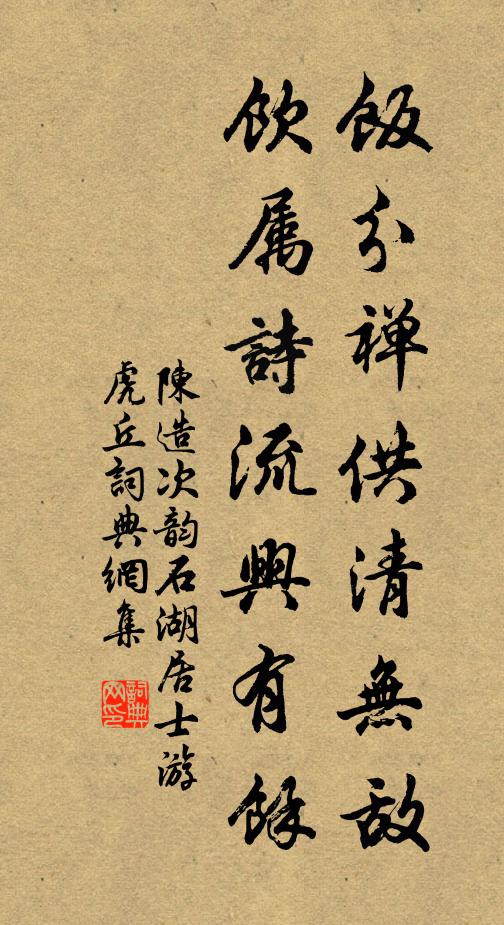 飯分禅供清無敌
飲属詩流興有餘
陳造次韵石湖居士游
虎丘詞典網集
詞典
网印